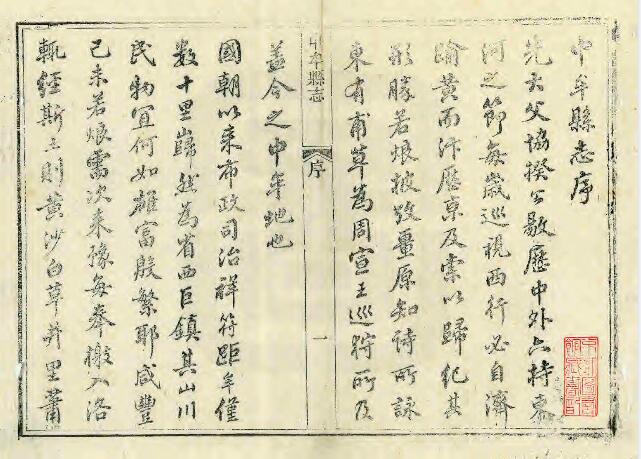 中牟縣志序
先大父協揆公敭歷中外六持東
河之節每歲巡視西行必自濟
踰黃而汴歷亰及索以歸紀其
形勝若烺披攷畺原知詩所詠
東有甫草為周宣王巡狩所及
中牟縣志
序
一
蓋今之中牟地也
國朝以來布政司治祥符距牟僅
數十里巋然為省西巨鎮其山川
民物宜何如雄富殷繁耶咸豐
己未若烺需次來豫每奉檄入洛
輒經斯土則黃沙白草井里蕭